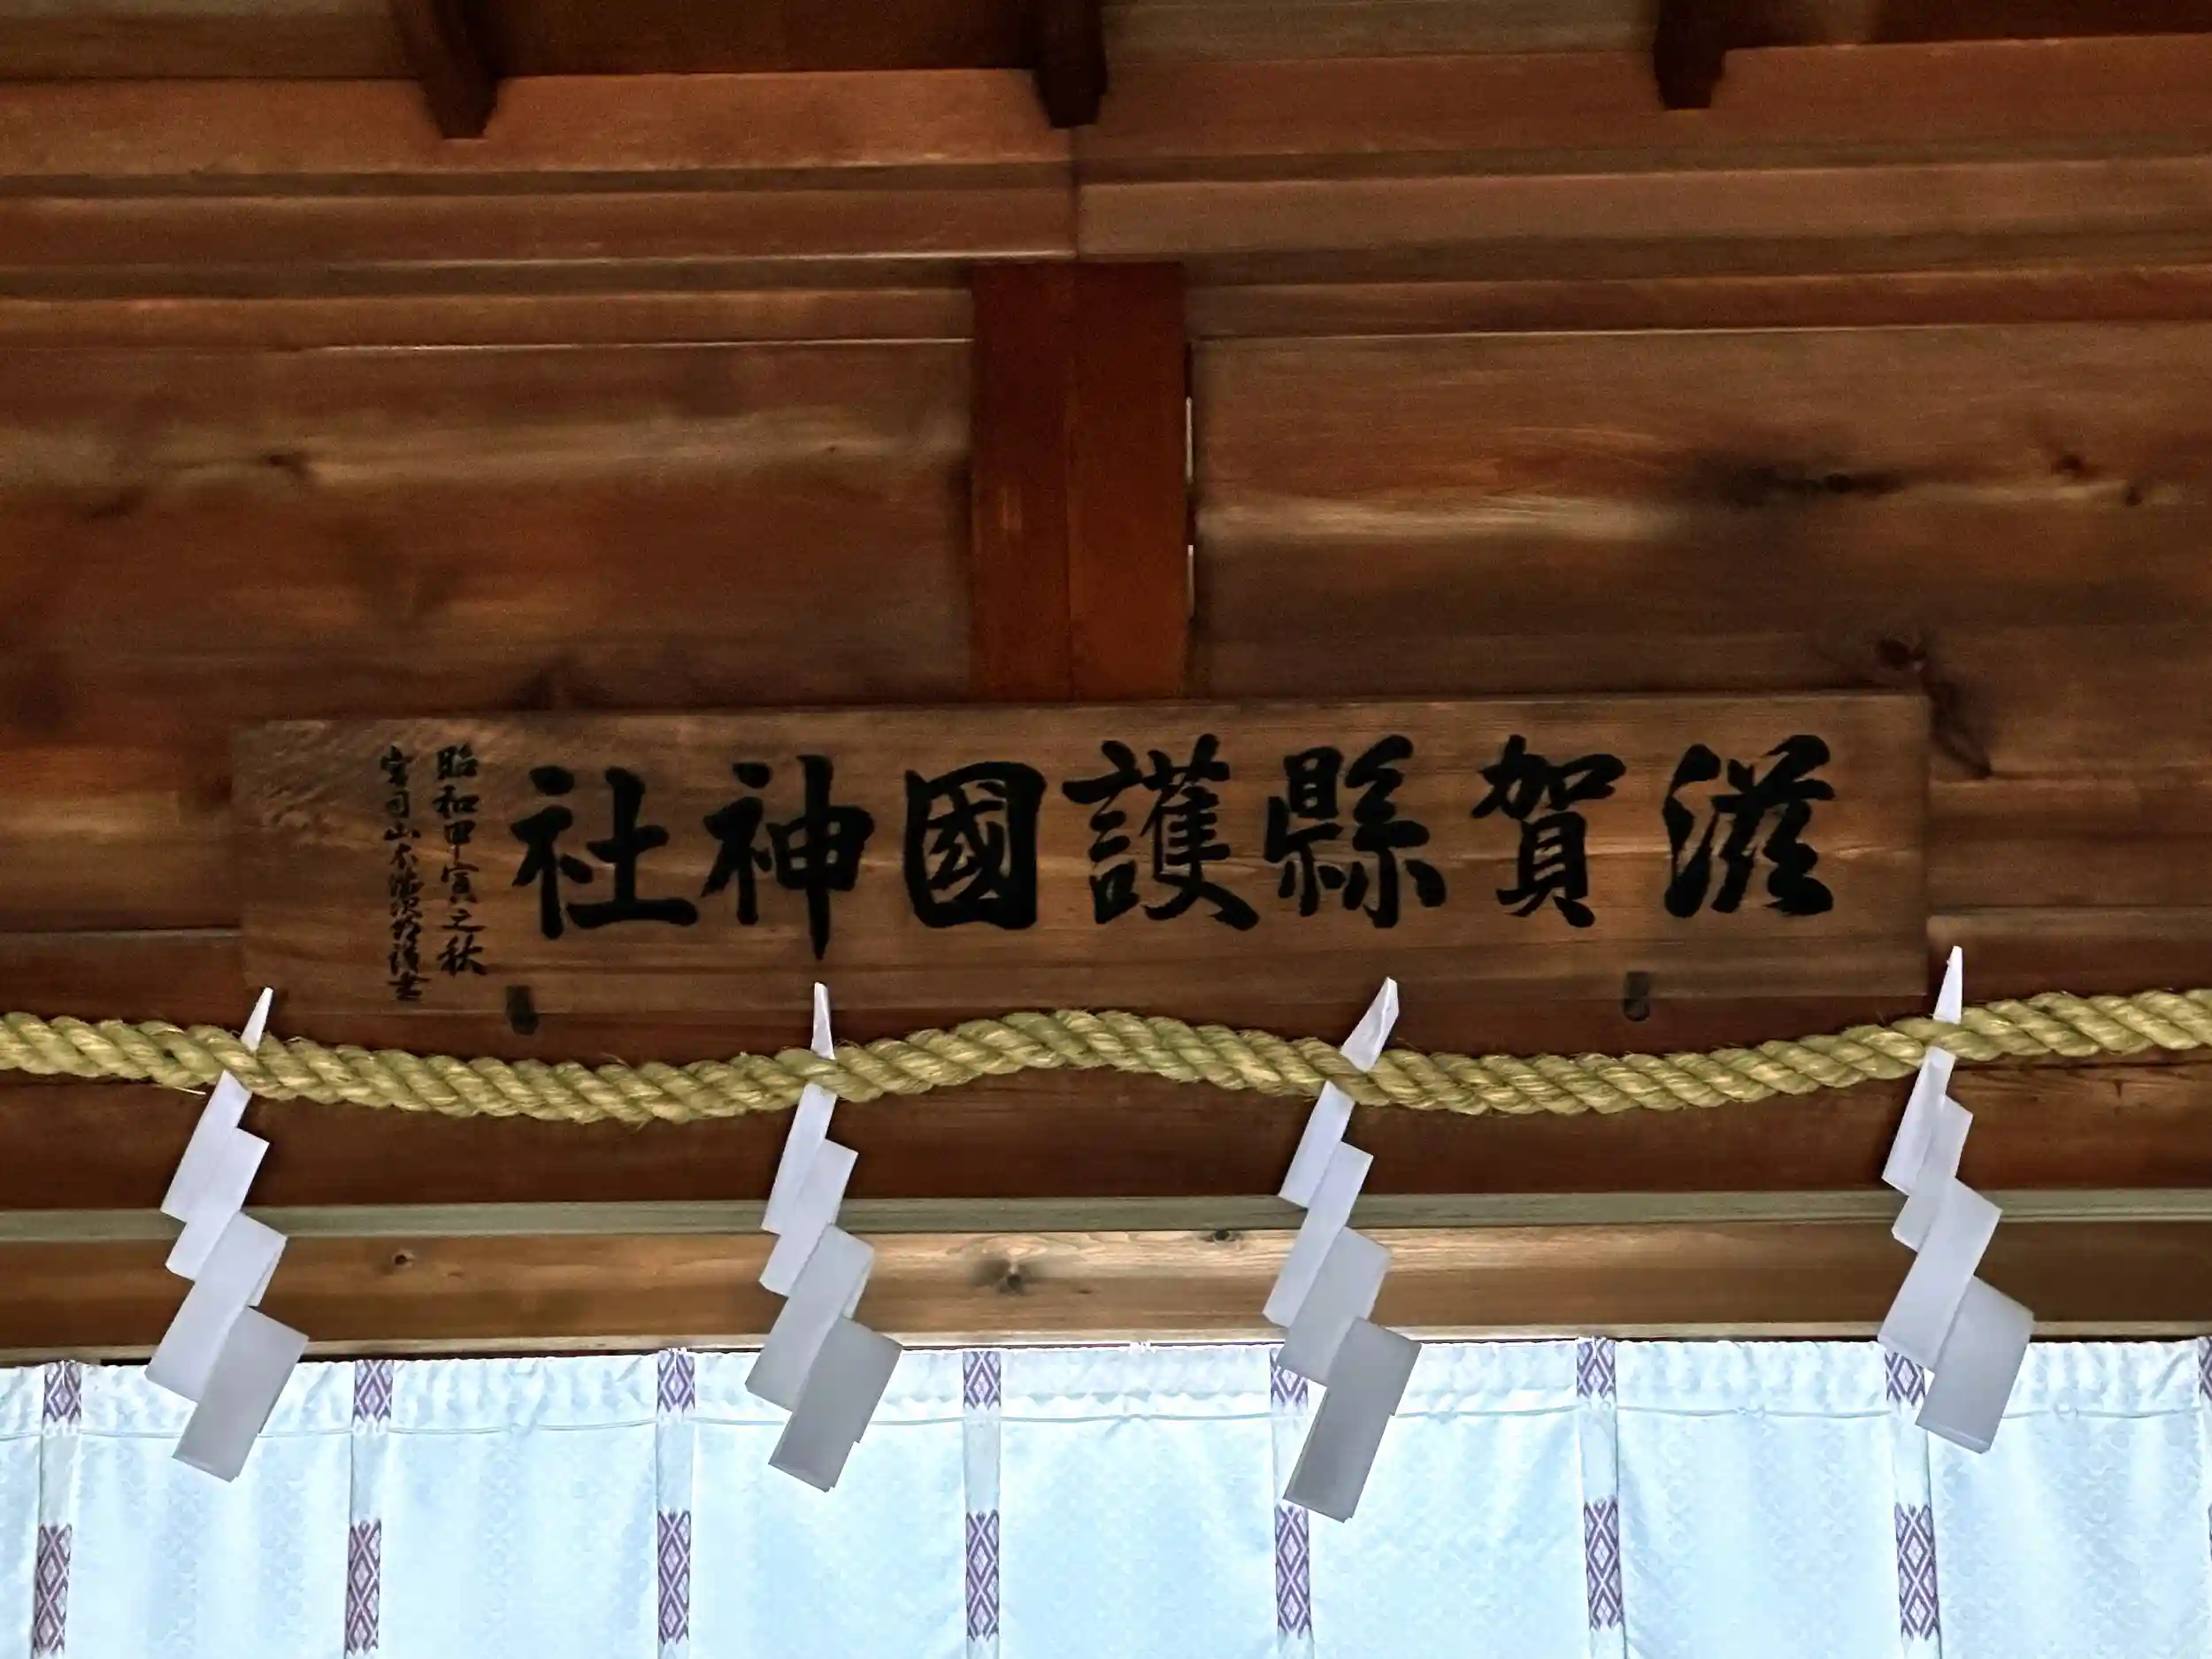 滋賀縣護國神社
昭和甲寅之秋
宮司山本